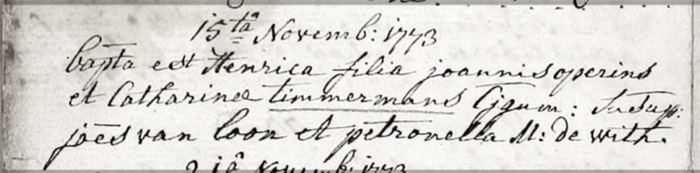 15ta Novemb: 1773
bapta est Henrica filia joannis operins
et Catharinæ timmermans Cjgum: Susup:
joës van loon et petronella M: de with.
21â Novemb: 1773